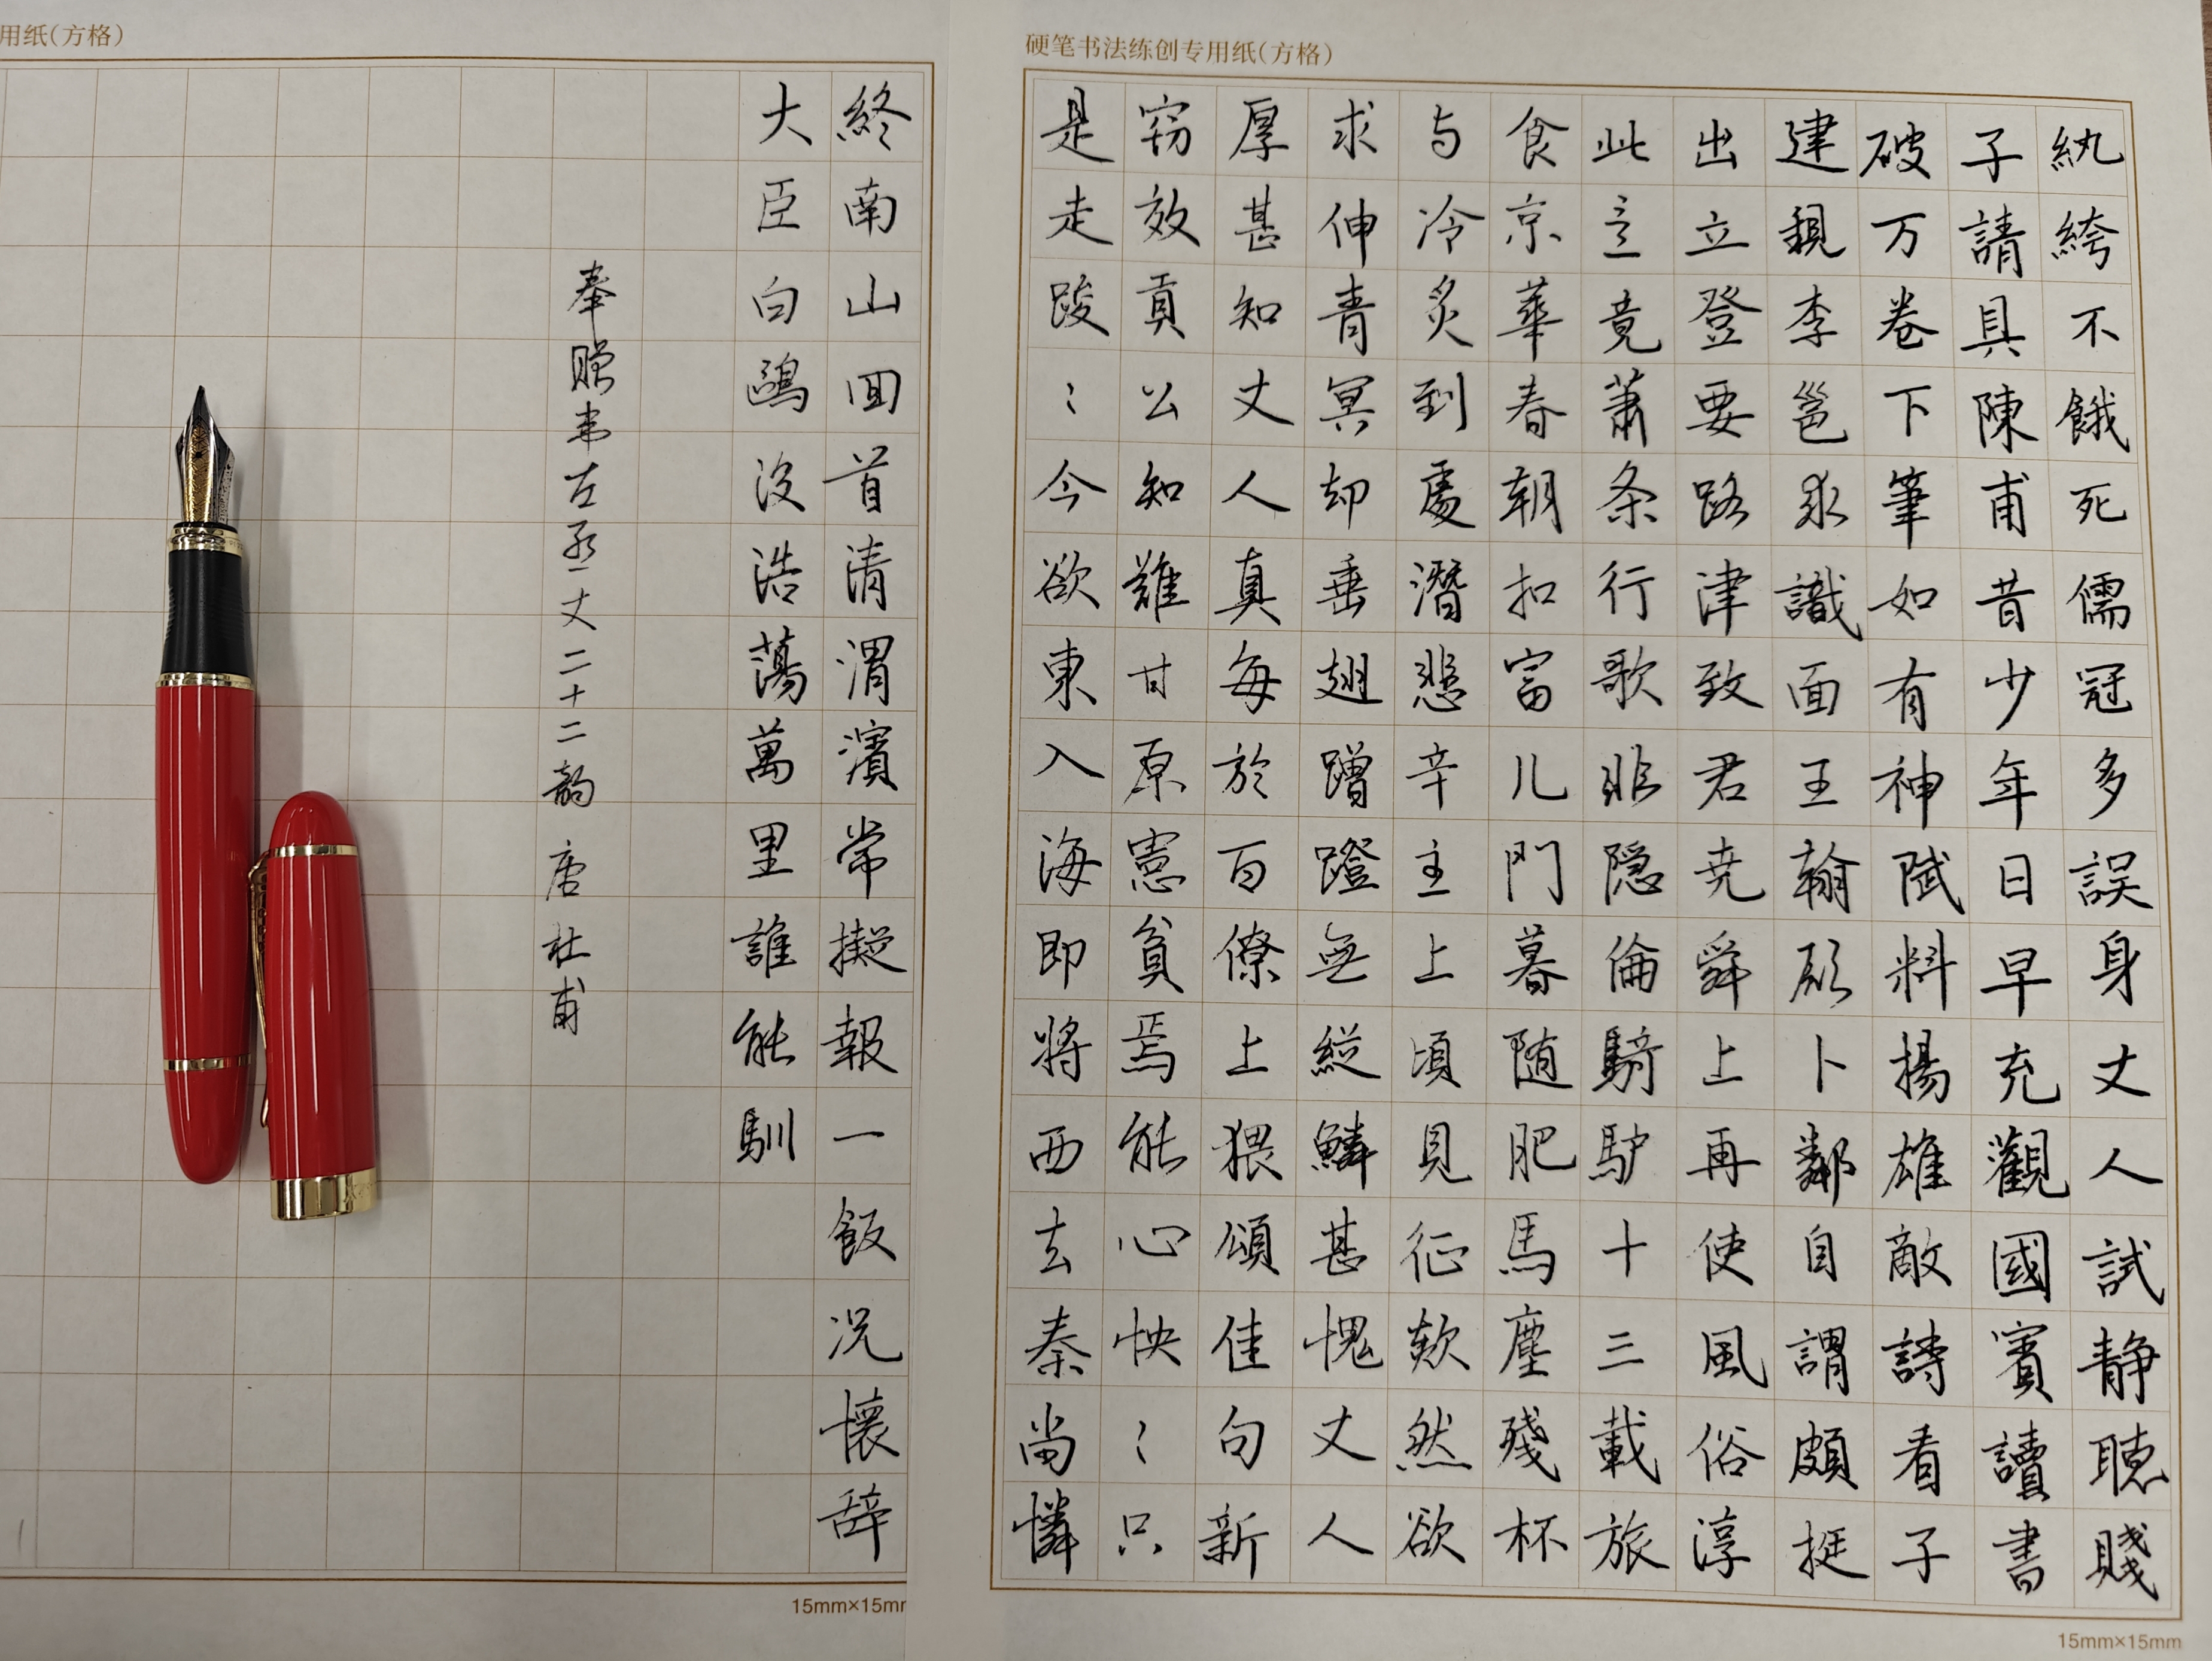 用纸(方格)
硬笔书法练创专用纸(方格)
紈絝不餓死儒冠多誤身丈人試静聴賤
子請具陳甫昔少年日早充觀國賓讀書
破万卷下筆如有神賦料揚雄敵詩看子
建親李邕求識面王翰願卜鄰自謂頗挺
出立登要路津致君尭舜上再使風俗淳
此意竟蕭条行歌非隠倫騎驴十三載旅
食京華春朝扣富儿門暮随肥馬塵殘杯
与冷炙到處潛悲辛主上頃見征欻然欲
求伸青冥却垂翅蹭蹬無縱鱗甚愧丈人
厚甚知丈人真每於百僚上猥頌佳句新
窃效貢公知難甘原憲貧焉能心怏〻只
是走踆〻今欲東入海即將西去秦尚憐
15mm×15mm
終南山回首清渭濱常擬報一飯况懷辞
大臣白鷗没浩蕩萬里誰能馴
奉赠韦左丞丈二十二韵 唐 杜甫
15mm×15mm